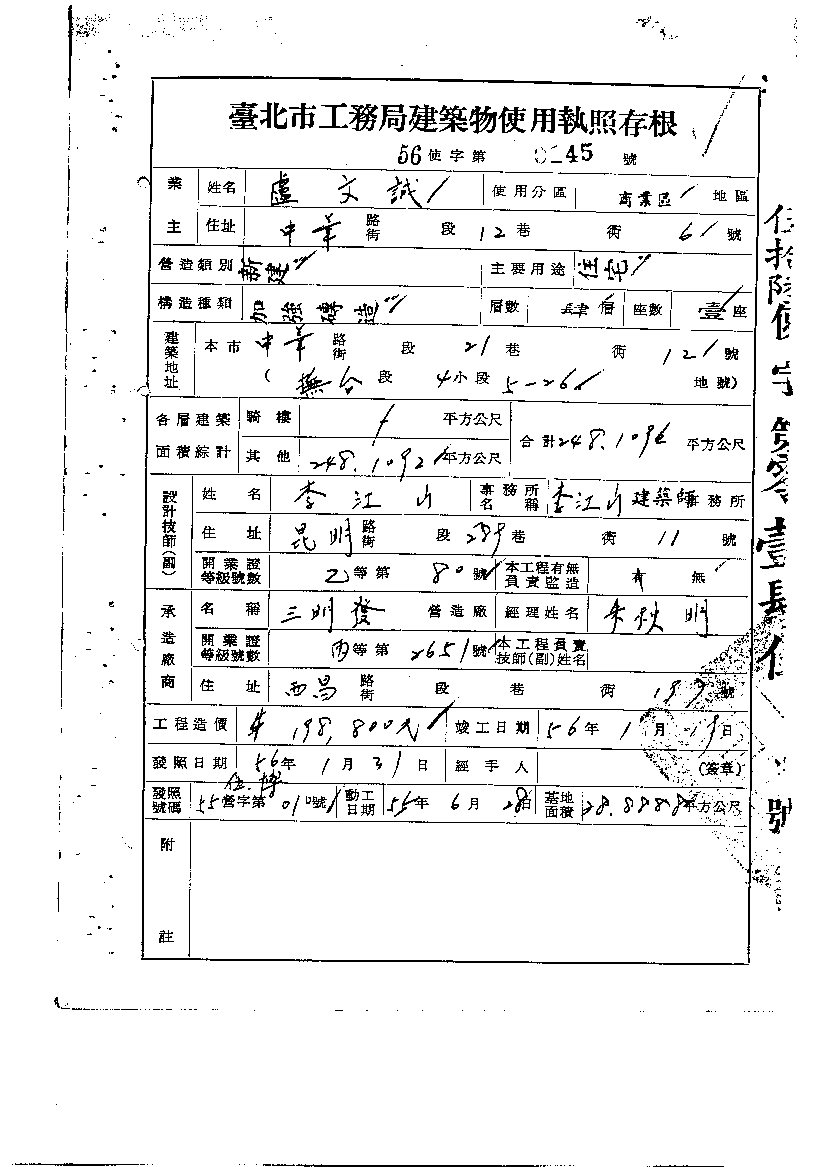 臺北市工務局建築物使用執照存根
56使字第0145號
業主 姓名 盧文誠 使用分區 商業區 地區
住址 中華路街 段 12巷 衖 6 號
營造類別 新建 主要用途 住宅
構造種類 加強磚造 層數 肆層 座數 壹座
建築地址 本市 中華路街 段 21巷 衖 12 號
(撫台段 4小段 5-26 地號)
各層建築面積綜計 騎樓 平方公尺 合計 248.1092 平方公尺
其他 248.1092 平方公尺
設計技師(副) 姓名 李江山 事務所名稱 李江山建築師事務所
住址 昆明路街 段 289巷 衖 11 號
開業證等級號數 乙等第80號 本工程有無負責監造 有 無
承造廠商 名稱 三明發 營造廠 經理姓名 朱秋明
開業證等級號數 丙等第2651號 本工程負責技師(副)姓名
住址 西昌路街 段 巷 衖 199號
工程造價 198,800元 竣工日期 56年1月19日
發照日期 56年1月31日 經手人 (簽章)
發照號碼 55營字第010號 動工日期 55年6月28日 基地面積 28.8888平方公尺
附註
伍拾陸使字第零壹肆伍號